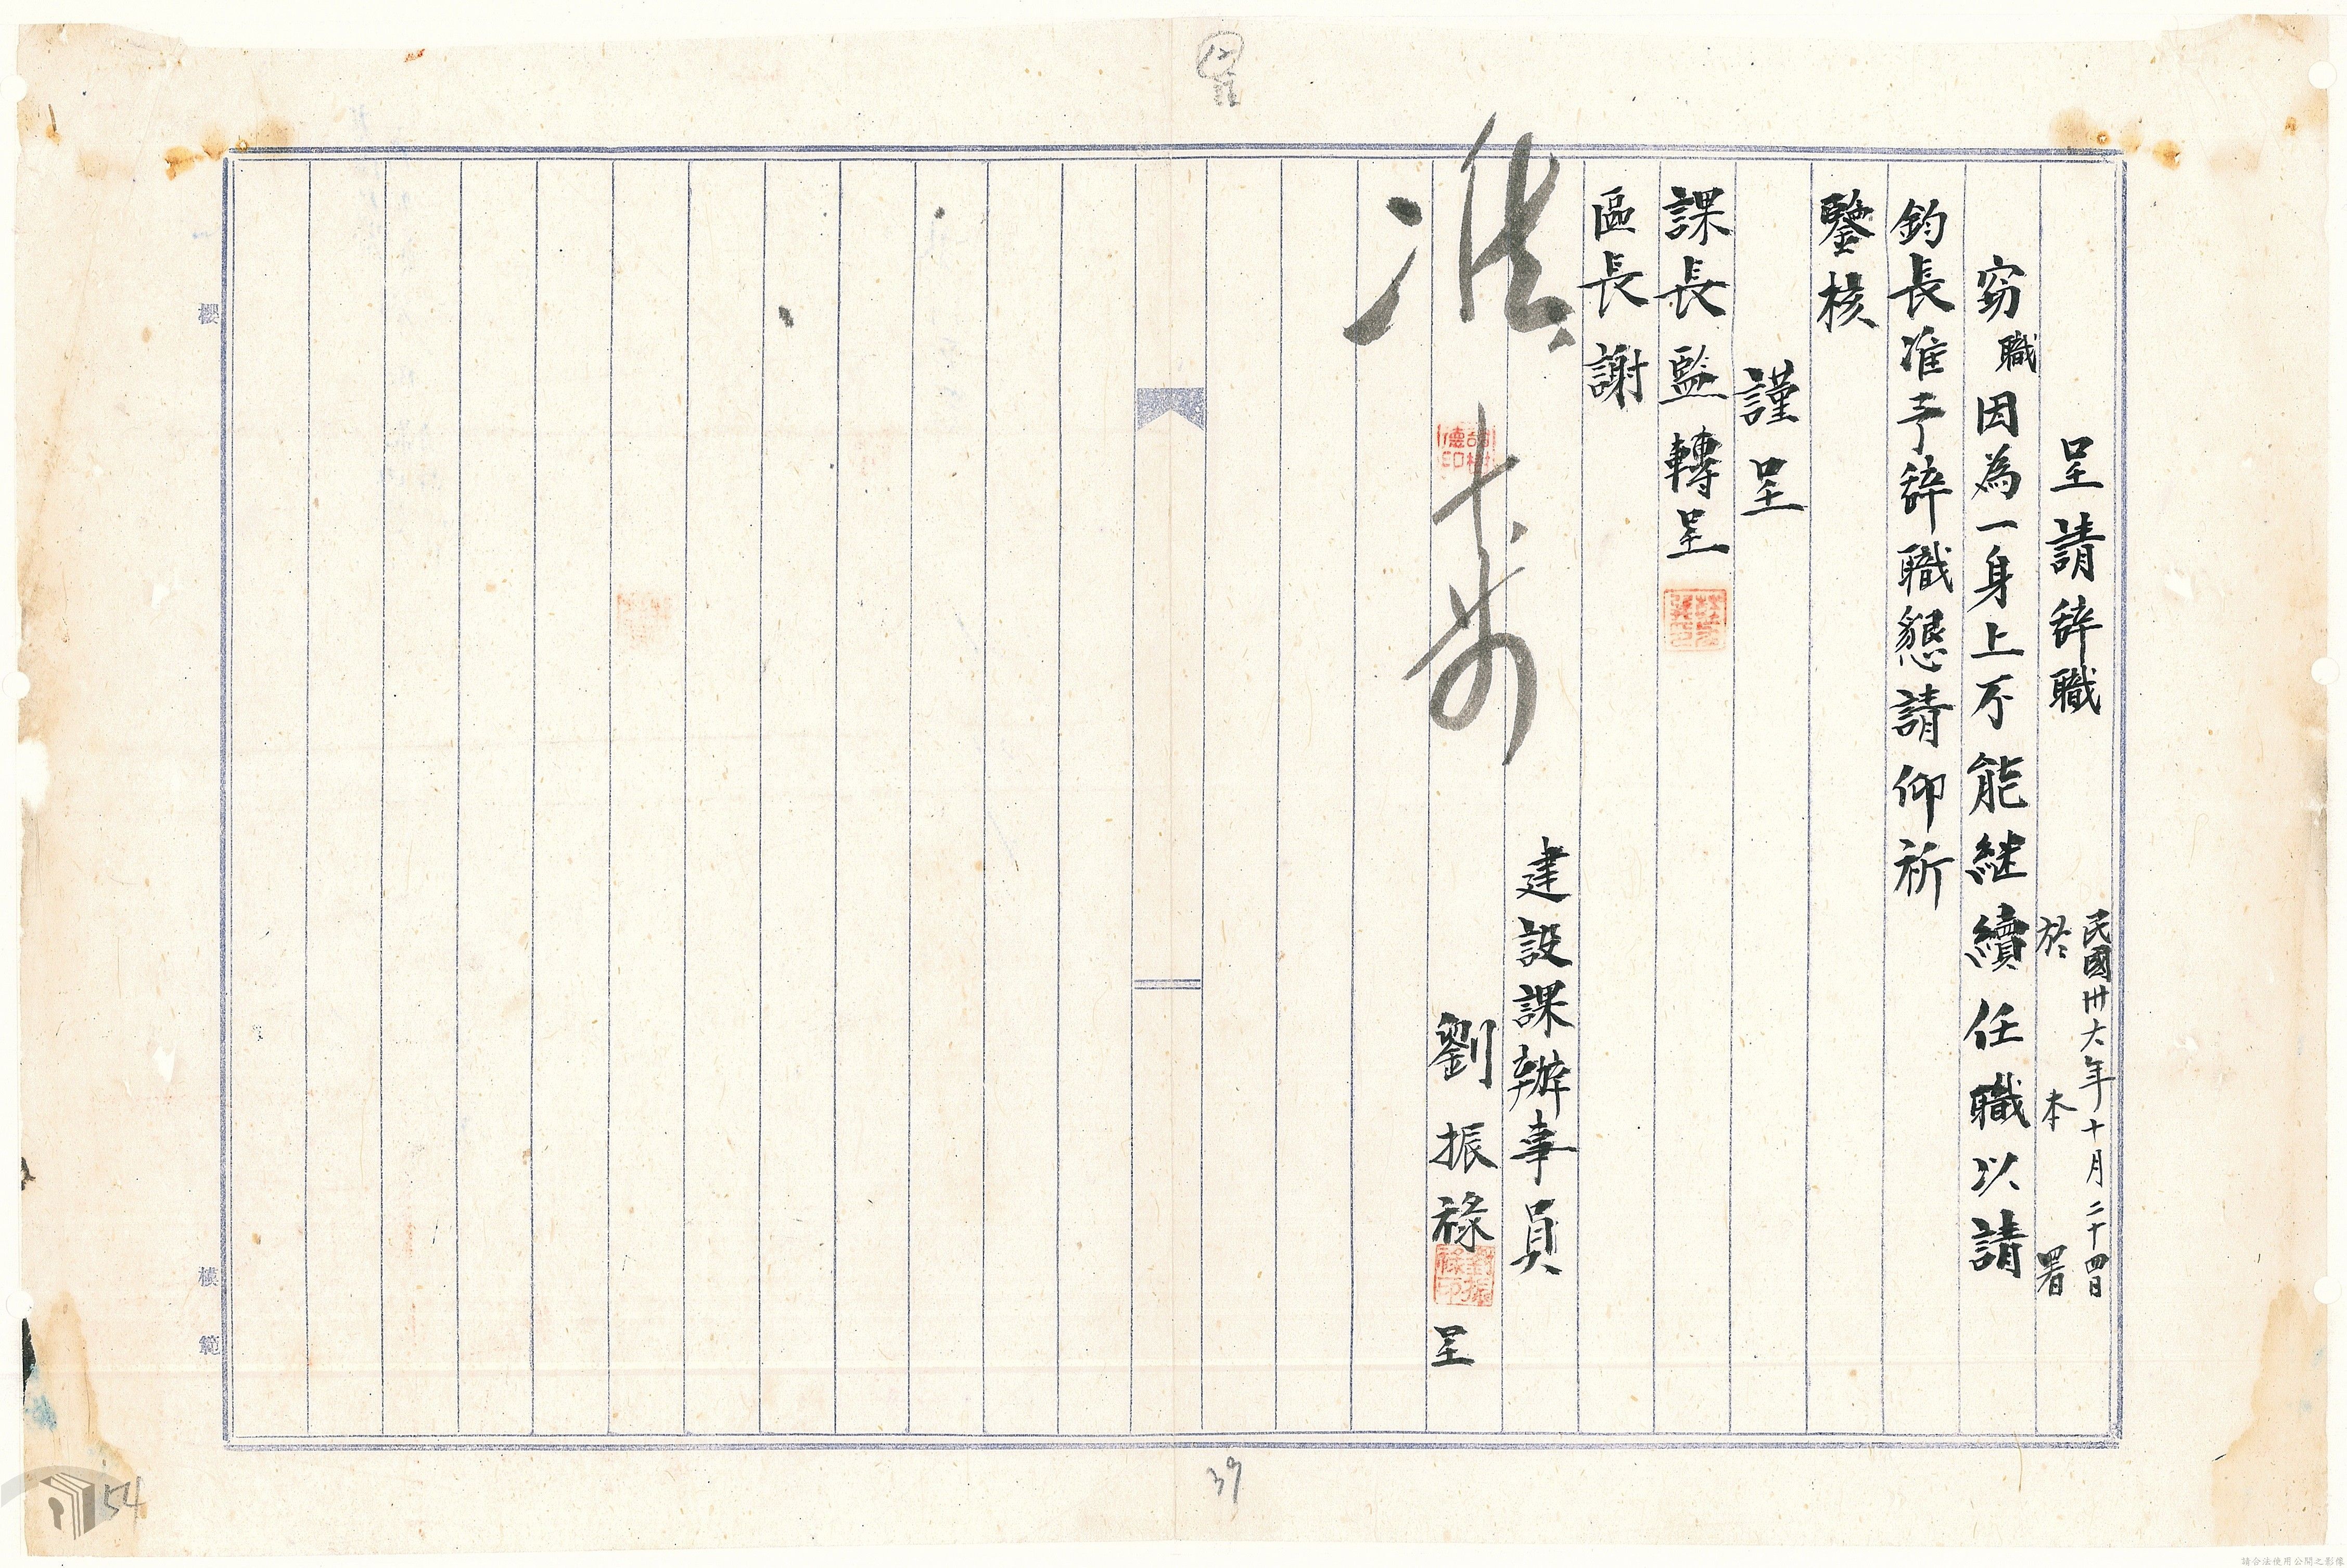 呈請辞職
民國卅六年十月二十四日
於 本 署
窃職因為一身上不能継續任職以請
鈞長准予辞職懇請仰祈
鑒核
謹呈
課長監轉呈
區長謝
准
建設課辦事員
劉振祿
劉振祿印
呈
櫻
模
範
39
54
請合法使用公開之影像